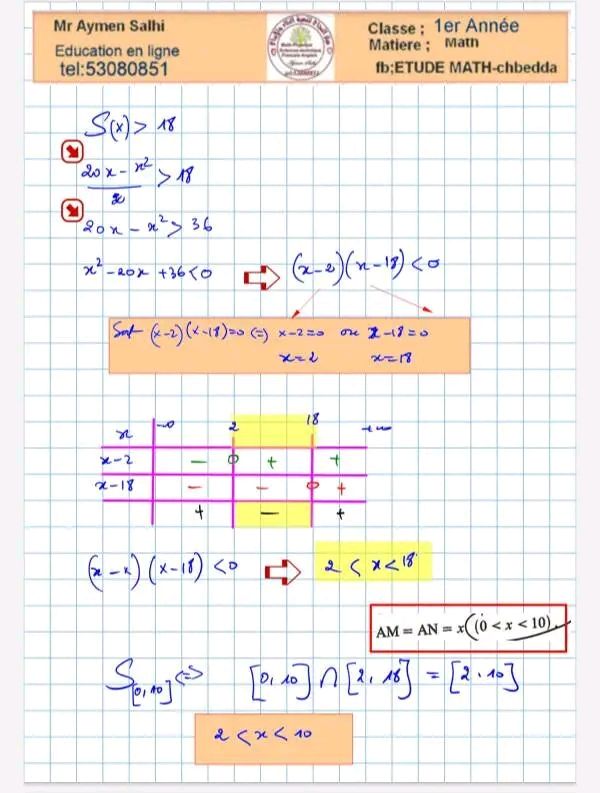 Mr Aymen Salhi
Education en ligne
tel:53080851
Classe ; 1er Année
Matiere ; Math
fb;ETUDE MATH-chbedda
S(x) > 18
20x - x² / 2 > 18
20x - x² > 36
x² - 20x + 36 < 0 ⇒ (x-2)(x-18) < 0
Soit (x-2)(x-18)=0 (=) x-2=0 ou x-18=0
x=2 x=18
x -∞ 2 18 +∞
x-2 - 0 + +
x-18 - - 0 +
+ - +
(x-x)(x-18) < 0 ⇒ 2 < x < 18
AM = AN = x (0 < x < 10).
S[0,10] ⇔ [0,10] ∩ [2,18] = [2.10]
2 < x < 10